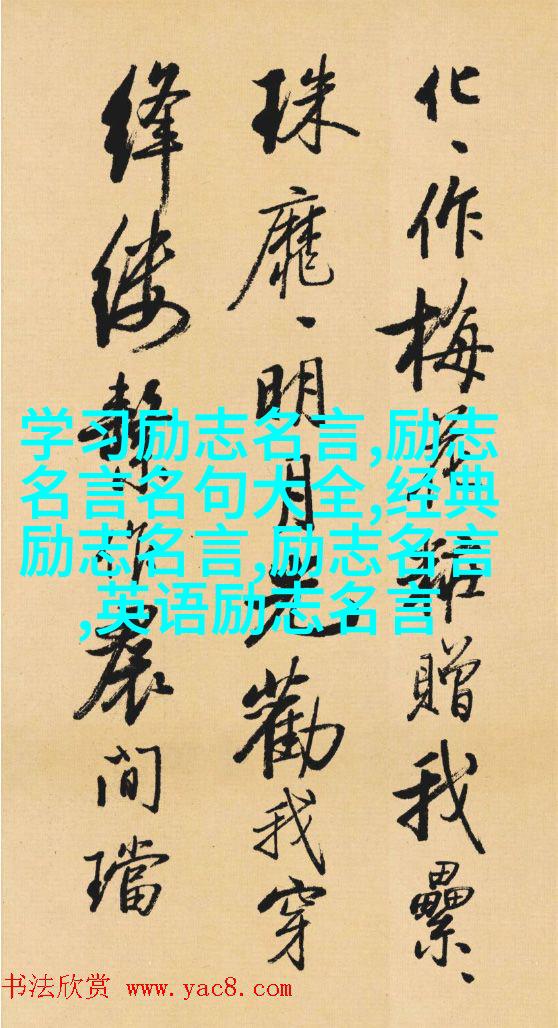 化、作梅贈我纍、
珠、明月勸我穿
絳縷作間璫
学习励志名言,励志
名言名句大全,经典
励志名言,励志名言
,英语励志名言
书法欣赏 www.yac8.com